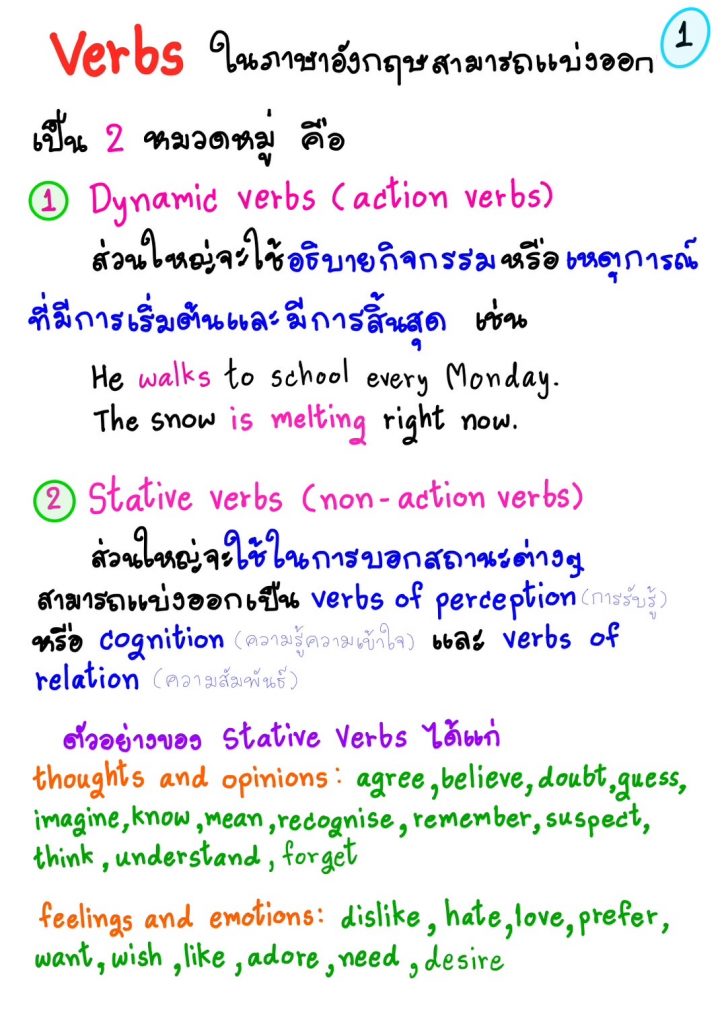 Verbs ในภาษาอังกฤษสามารถแบ่งออก
1
เป็น 2 หมวดหมู่ คือ
1 Dynamic verbs (action verbs)
ส่วนใหญ่จะใช้อธิบายกิจกรรมหรือเหตุการณ์
ที่มีการเริ่มต้นและมีการสิ้นสุด เช่น
He walks to school every Monday.
The snow is melting right now.
2 Stative verbs (non-action verbs)
ส่วนใหญ่จะใช้ในการบอกสถานะต่างๆ
สามารถแบ่งออกเป็น verbs of perception (การรับรู้)
หรือ cognition (ความรู้ความเข้าใจ) และ verbs of
relation (ความสัมพันธ์)
ตัวอย่างของ Stative Verbs ได้แก่
thoughts and opinions: agree, believe, doubt, guess,
imagine, know, mean, recognise, remember, suspect,
think, understand, forget
feelings and emotions: dislike, hate, love, prefer,
want, wish, like, adore, need, desire